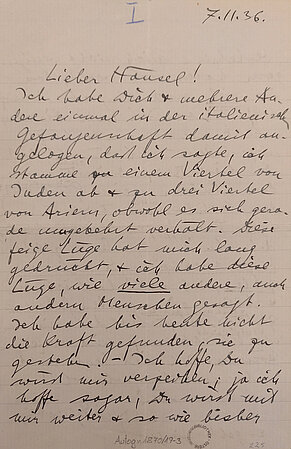 I
7.11.36.
Lieber Hänsel!
Ich habe Dich & mehrere An-
dere einmal in der italienisch
Gefangenschaft damit an-
gelogen, daß ich sagte, ich
stamme zu einem Viertel von
Juden ab & zu drei Viertel
von Ariern, obwohl es sich gera-
de umgekehrt verhält. Diese
feige Lüge hat mich lang
gedrückt, & ich habe diese
Lüge, wie viele andere, auch
andern Menschen gesagt.
Ich habe bis heute nicht
die Kraft gefunden, sie zu
gestehen. – Ich hoffe, Du
wirst mir verzeihen; ja ich
hoffe sogar, Du wirst mit
mir weiter & so wie bisher
Autogr. 1840/19-3